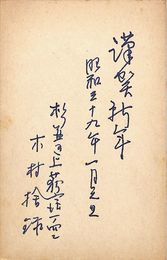 謹賀新年
昭和三十九年一月元旦
杉並区上荻窪一ノ
木村捨録